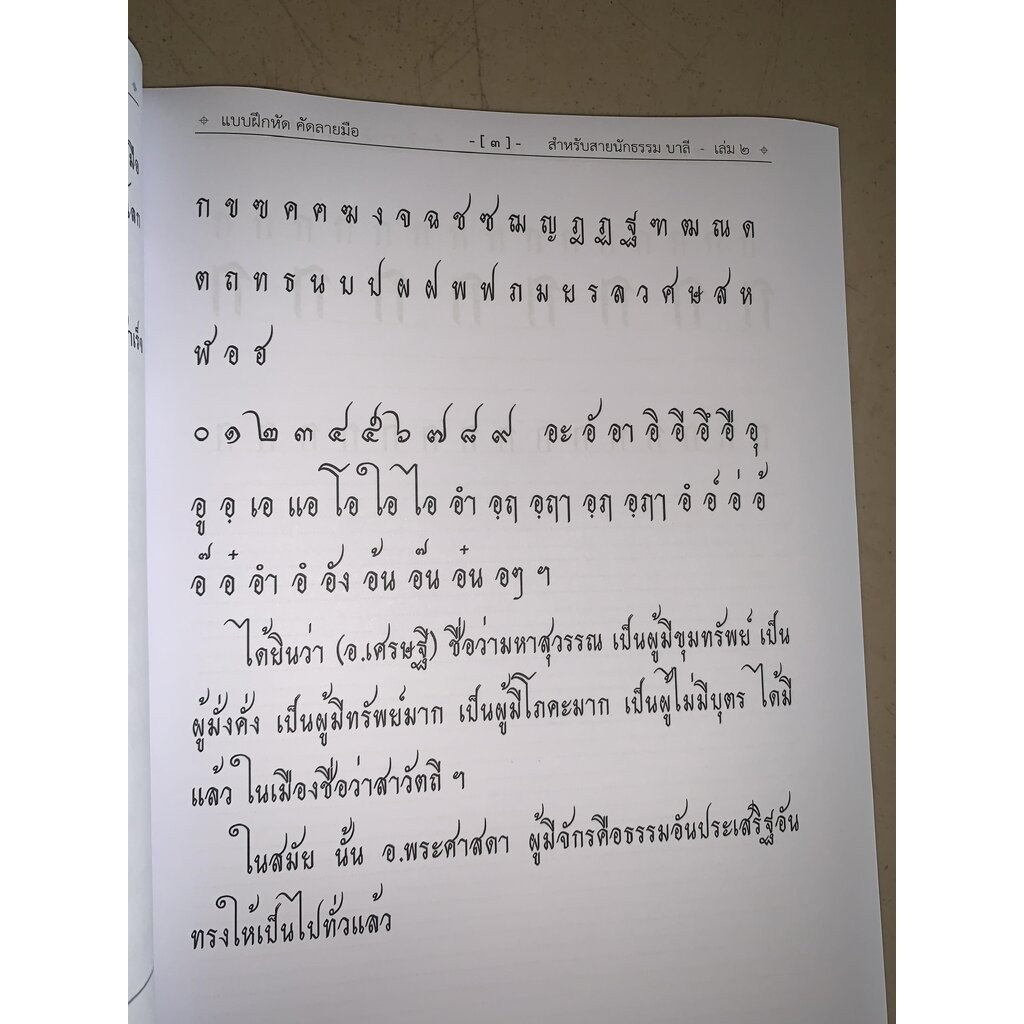 แบบฝึกหัด คัดลายมือ -[ ๓ ]- สำหรับสายนักธรรม บาลี - เล่ม ๒
ก ข ฃ ค ฅ ฆ ง จ ฉ ช ซ ฌ ญ ฎ ฏ ฐ ฑ ฒ ณ ด
ต ถ ท ธ น บ ป ผ ฝ พ ฟ ภ ม ย ร ล ว ศ ษ ส ห
ฬ อ ฮ
๐ ๑ ๒ ๓ ๔ ๕ ๖ ๗ ๘ ๙ อะ อั อา อิ อี อึ อื อุ
อู อฺ เอ แอ โอ ใอ ไอ อำ อฺฤ อฺฤๅ อฺฦ อฺฦๅ อํ อ์ อ่ อ้
อ๊ อ๋ อำ อํ อัง อ้น อ๊น อ๋น อๆ ฯ
ได้ยินว่า (อ.เศรษฐี) ชื่อว่ามหาสุวรรณ เป็นผู้มีขุมทรัพย์ เป็น
ผู้มั่งคั่ง เป็นผู้มีทรัพย์มาก เป็นผู้มีโภคะมาก เป็นผู้ไม่มีบุตร ได้มี
แล้ว ในเมืองชื่อว่าสาวัตถี ฯ
ในสมัย นั้น อ.พระศาสดา ผู้มีจักรคือธรรมอันประเสริฐอัน
ทรงให้เป็นไปทั่วแล้ว